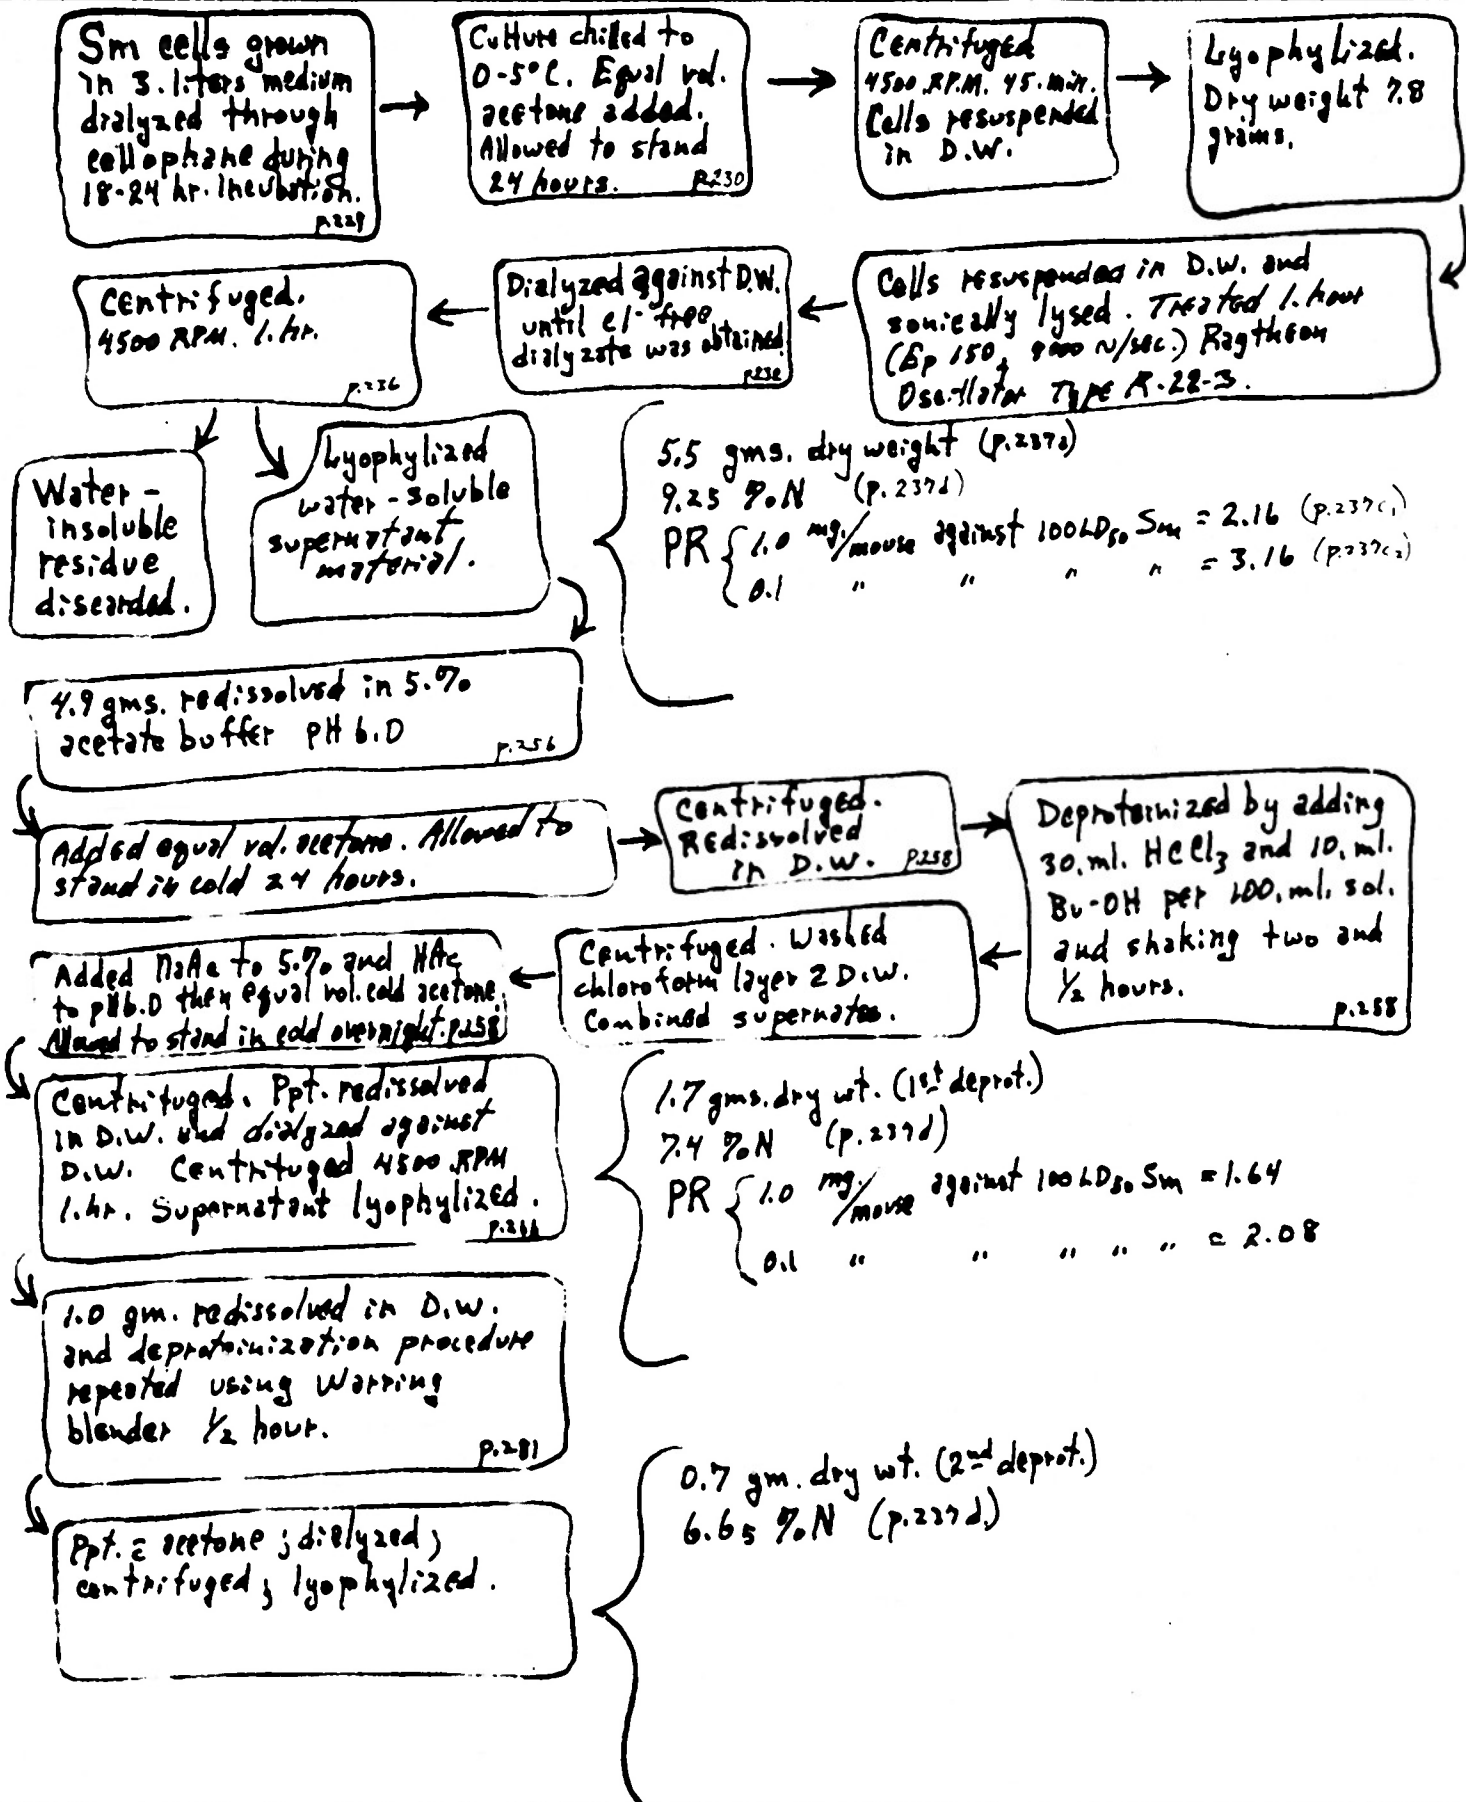 Sm cells grown
in 3. liters medium
dialyzed through
cellophane during
18-24 hr. incubation.
p.229
Culture chilled to
0-5°C. Equal vol.
acetone added.
Allowed to stand
24 hours. p.230
Centrifuged
4500 R.P.M. 45. min.
Cells resuspended
in D.W.
Lyophylized.
Dry weight 7.8
grams.
Cells resuspended in D.W. and
sonically lysed. Treated 1. hour
(Ep 150, 9000 ~/sec.) Raytheon
Oscillator Type R-22-3.
Dialyzed against D.W.
until cl⁻ free
dialyzate was obtained
p.232
Centrifuged.
4500 RPM. 1. hr.
p.236
Water-
insoluble
residue
discarded.
Lyophylized
water-soluble
supernatant
material.
5.5 gms. dry weight (p.237d)
9.25 %N (p.237d)
PR { 1.0 mg./mouse against 100 LD50 Sm = 2.16 (p.237c1)
0.1 " " " " = 3.16 (p.237c2)
4.9 gms. redissolved in 5.%
acetate buffer pH 6.0
p.256
Added equal vol. acetone. Allowed to
stand in cold 24 hours.
Centrifuged.
Redissolved
in D.W. p.258
Deproteinized by adding
30. ml. HCCl3 and 10. ml.
Bu-OH per 100. ml. sol.
and shaking two and
1/2 hours.
p.258
Centrifuged. Washed
chloroform layer 2 D.W.
Combined supernates.
Added NaAc to 5.% and HAc
to pH 6.0 then equal vol. cold acetone.
Allowed to stand in cold overnight. p.258
Centrifuged. Ppt. redissolved
in D.W. and dialyzed against
D.W. Centrifuged 4500 RPM
1. hr. Supernatant lyophylized.
1.7 gms. dry wt. (1st deprot.)
7.4 %N (p.237d)
PR { 1.0 mg./mouse against 100 LD50 Sm = 1.64
0.1 " " " " " = 2.08
1.0 gm. redissolved in D.W.
and deproteinization procedure
repeated using Warring
blender 1/2 hour.
p.281
0.7 gm. dry wt. (2nd deprot.)
6.65 %N (p.237d.)
Ppt. c̄ acetone; dialyzed;
centrifuged; lyophylized.